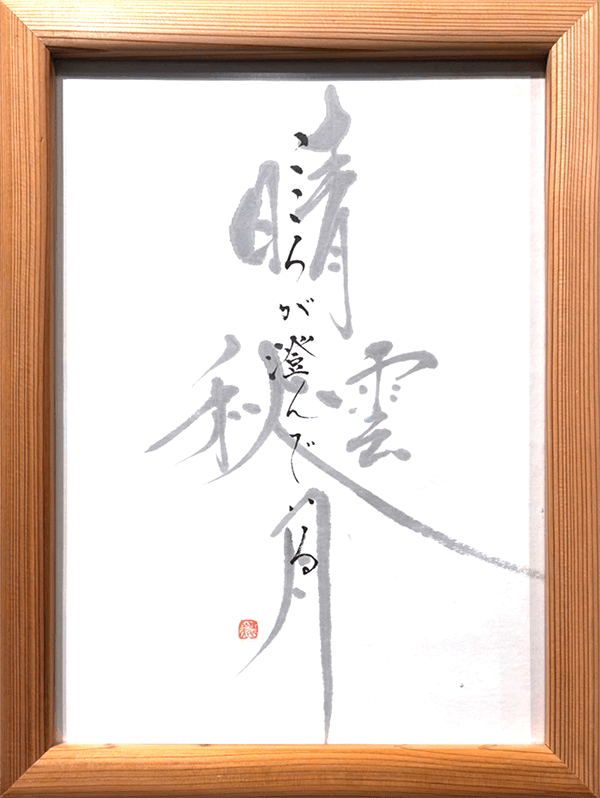 晴雲秋月
こころが澄んでいる